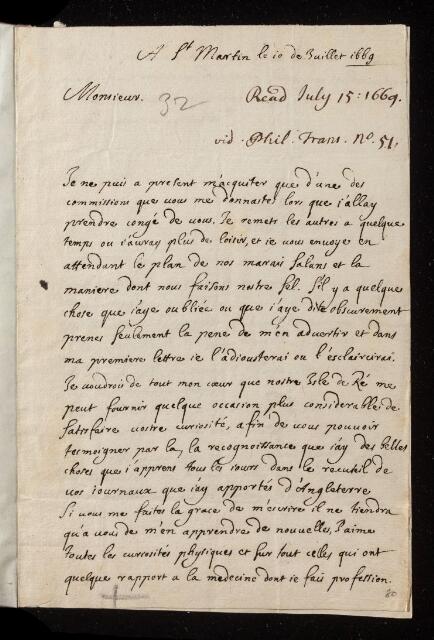 A St Martin le 10 de Juillet 1669
Monsieur. 32 Read July 15: 1669.
vid. Phil. Trans. No. 51.
Je ne puis a present m'acquiter que d'une des
commissions que vous me donnastes lors que j'allay
prendre congé de vous. Je remets les autres a quelque
temps ou i'auray plus de loisir, et ie vous envoye en
attendant le plan de nos marais salans et la
maniere dont nous faisons nostre sel. S'il y a quelque
chose que j'aye oubliée ou que j'aye dite obscurement
prenes seulement la pene de m'en advertir et dans
ma premiere lettre ie l'adiousterai ou l'esclaircirai.
Je voudrois de tout mon cœur que nostre Isle de Ré me
peut fournir quelque occasion plus considerable de
satisfaire vostre curiosité, afin de vous pouvoir
tesmoigner par la, la recognoissance que j'ay des belles
choses que i'apprens tous les iours dans le recueil de
vos iournaux que j'ay apportés d'Angleterre
Si vous me faites la grace de m'escrire il ne tiendra
qu'a vous de m'en apprendre de nouvelles, J'aime
toutes les curiosités physiques et sur tout celles qui ont
quelque rapport a la medecine dont ie fais profession.